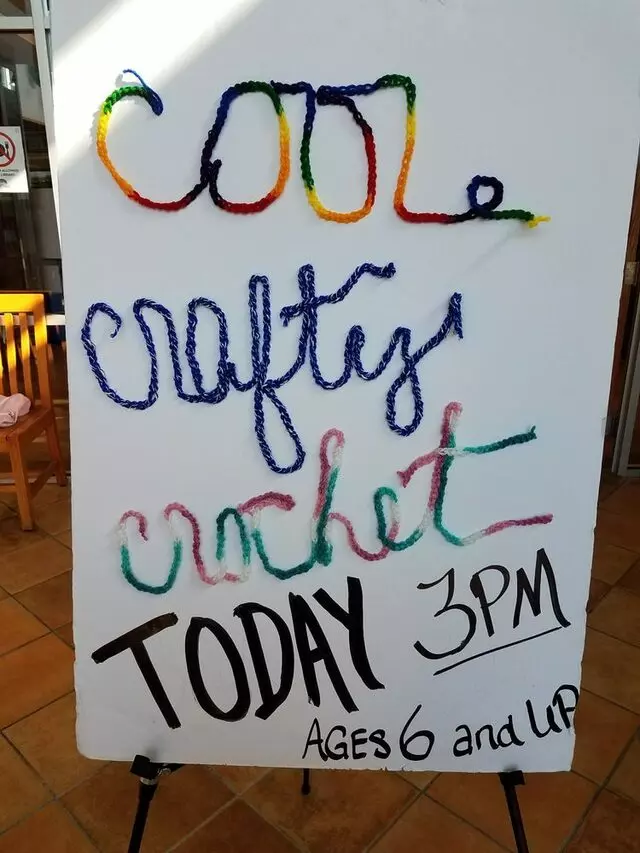 cool
crafty
crochet
TODAY 3PM
AGES 6 and UP